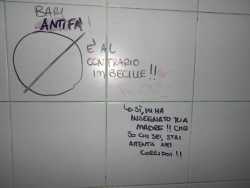 BARI
ANTIFA!
E' AL
CONTRARIO
IMBECILLE!!
LO SÌ, MI HA
INSEGNATO TUA
MADRE!! CHO
SO CHI SEI, STAI
ATTENTA NEI
CORRIDOI!!